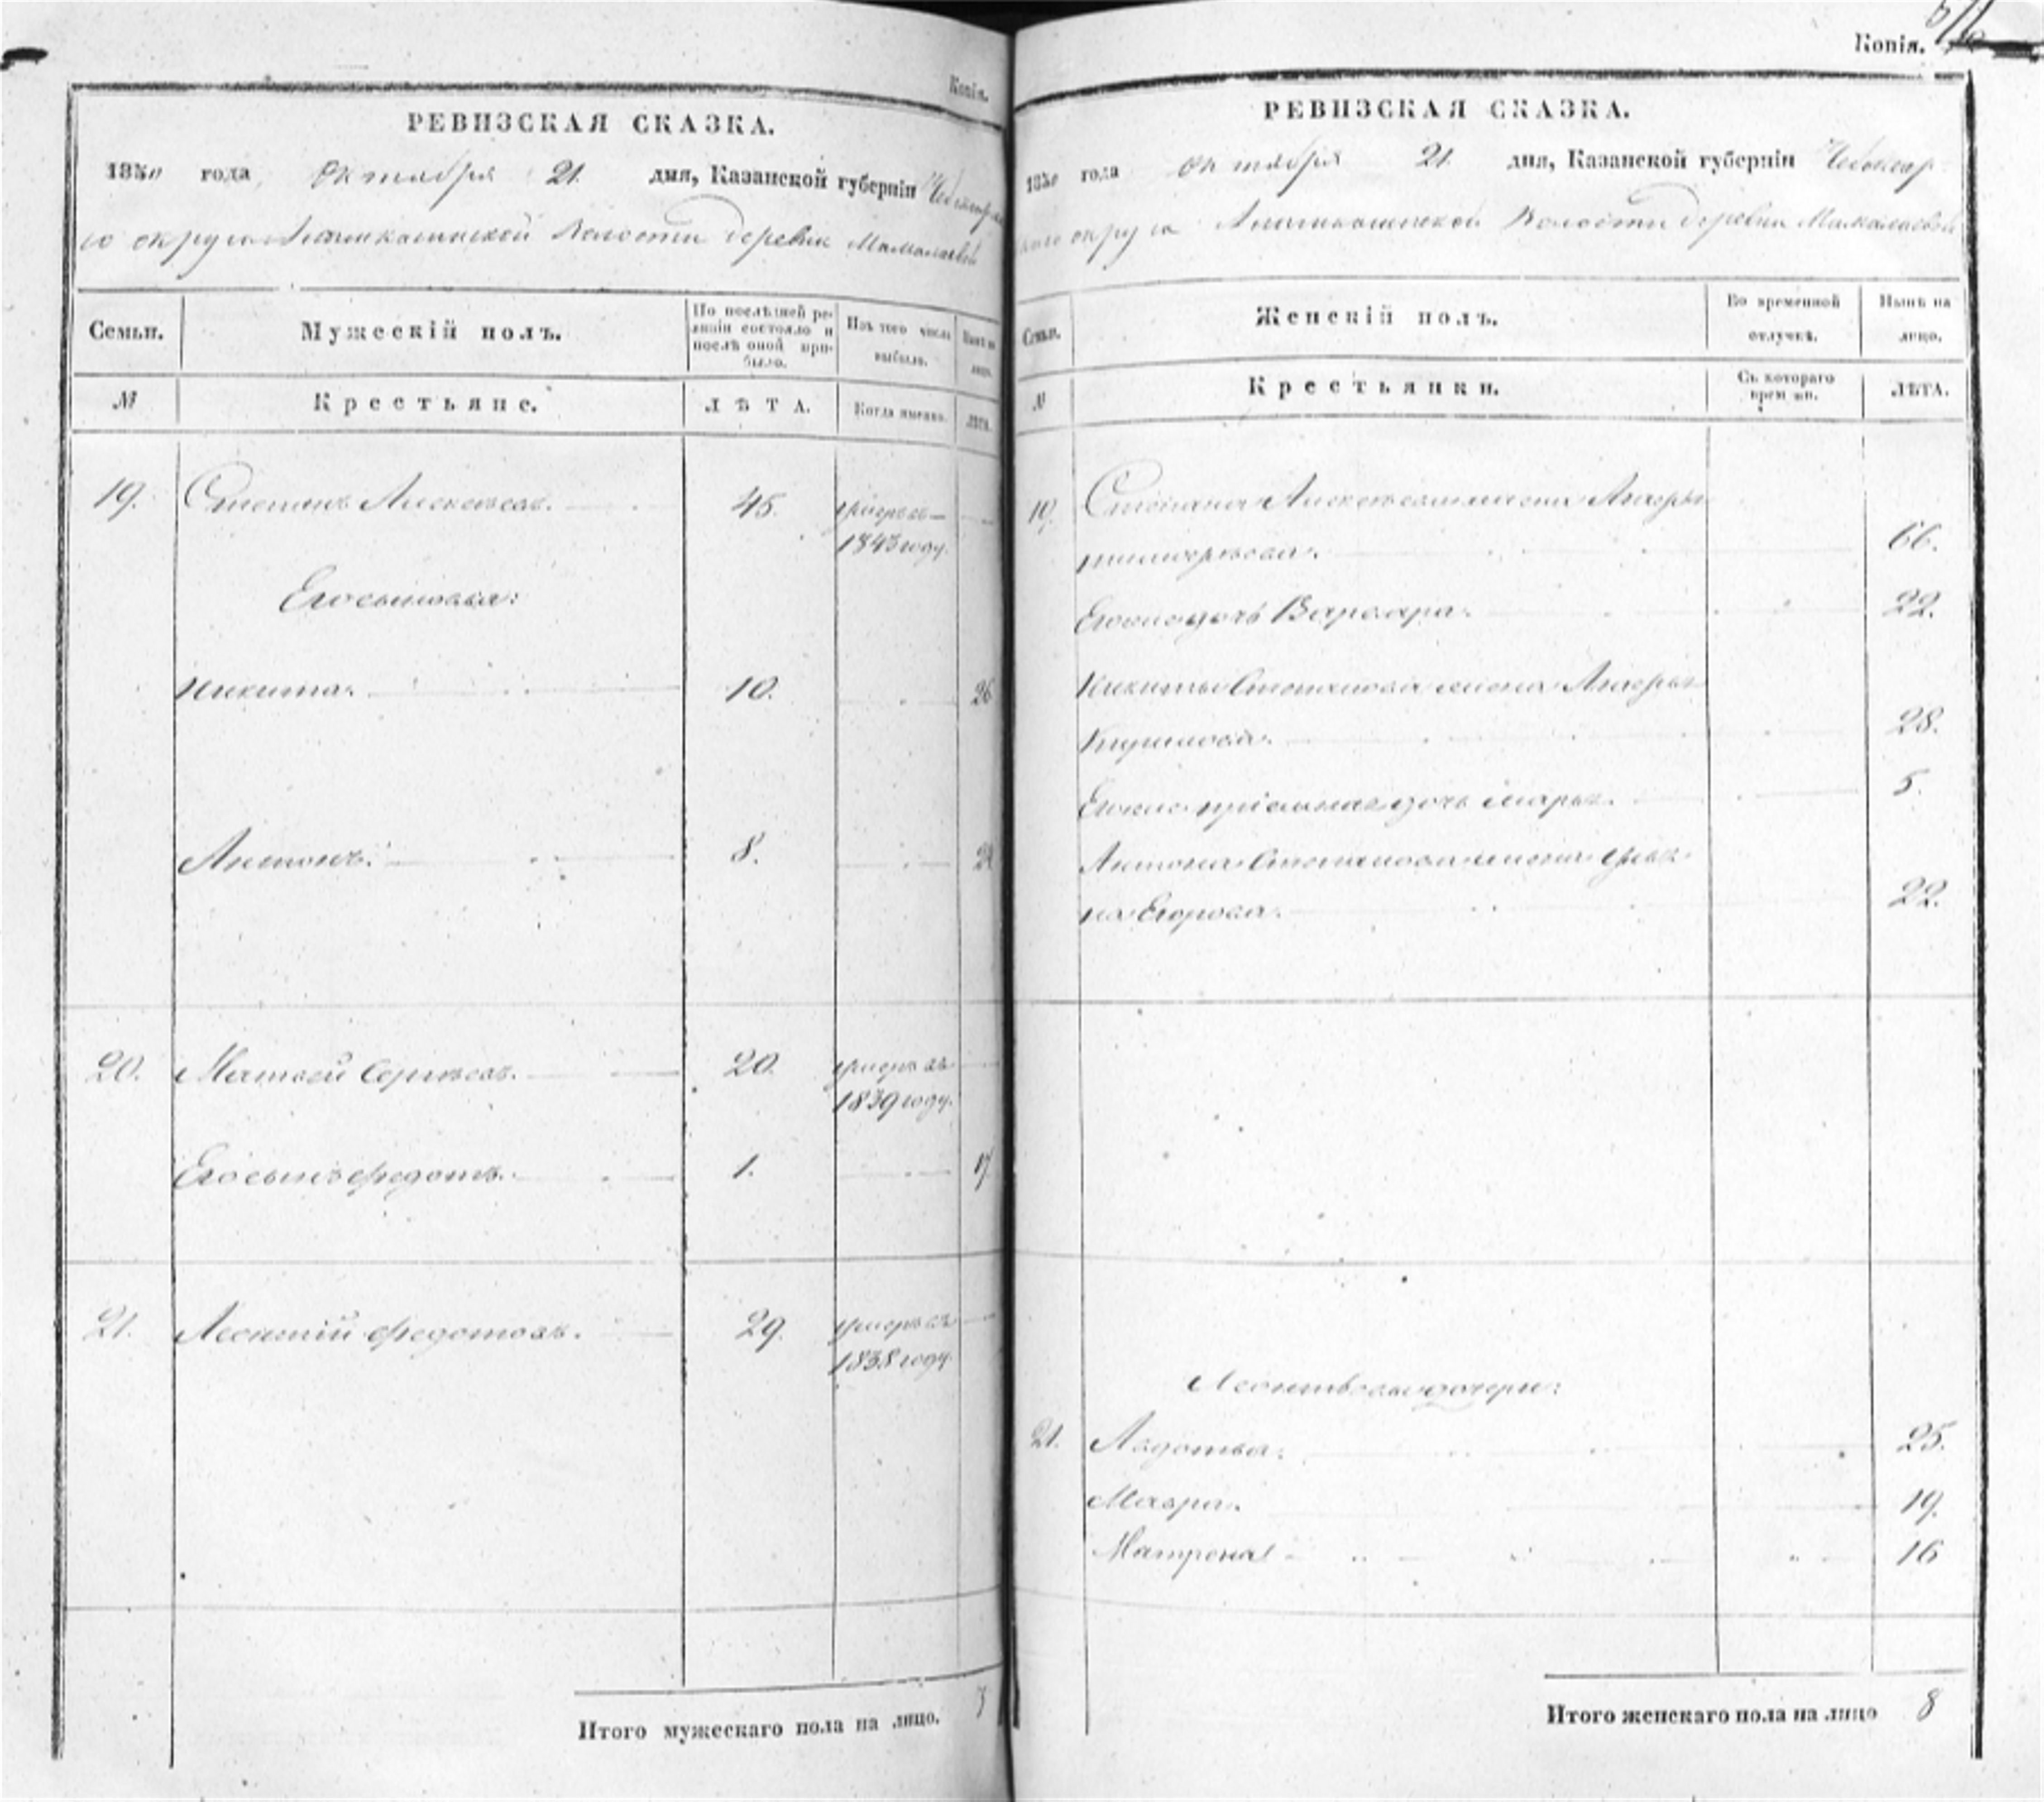 Копія.
Копія.
РЕВИЗСКАЯ СКАЗКА.
1850 года Октября 21 дня, Казанской губерніи
округа Волости деревни
Семьи.
Мужескій полъ.
По послѣдней ре-
визіи состояло и
послѣ оной при-
было.
Изъ того числа
выбыло.
Нынѣ на
лицо.
№
Крестьяне.
ЛѢТА.
Когда именно.
ЛѢТА.
19. Степанъ Алексѣевъ. 45. умеръ въ
1843 году.
Его сыновья:
Никита. 10. 26
Антонъ. 8. 24
20. Матвей Сергѣевъ. 20. умеръ въ
1839 году.
Его сынъ Федотъ. 1. 17
21. Леонтій Федотовъ. 29. умеръ въ
1838 году.
Итого мужескаго пола на лицо. 3
РЕВИЗСКАЯ СКАЗКА.
1850 года Октября 21. дня, Казанской губерніи Чебоксар
скаго округа Волости деревни
Семьи.
Женскій полъ.
Во временной
отлучкѣ.
Нынѣ на
лицо.
№
Крестьянки.
Съ котораго
времени.
ЛѢТА.
19. Степана Алексѣева жена
66.
Его дочь Варвара. 22.
Никиты Степанова жена
28.
дочь Марья. 5.
Антона Степанова жена
на Егорова. 22.
Леонтьевы дочери:
21. Авдотья. 25.
Мавра. 19.
Матрена 16
Итого женскаго пола на лицо 8